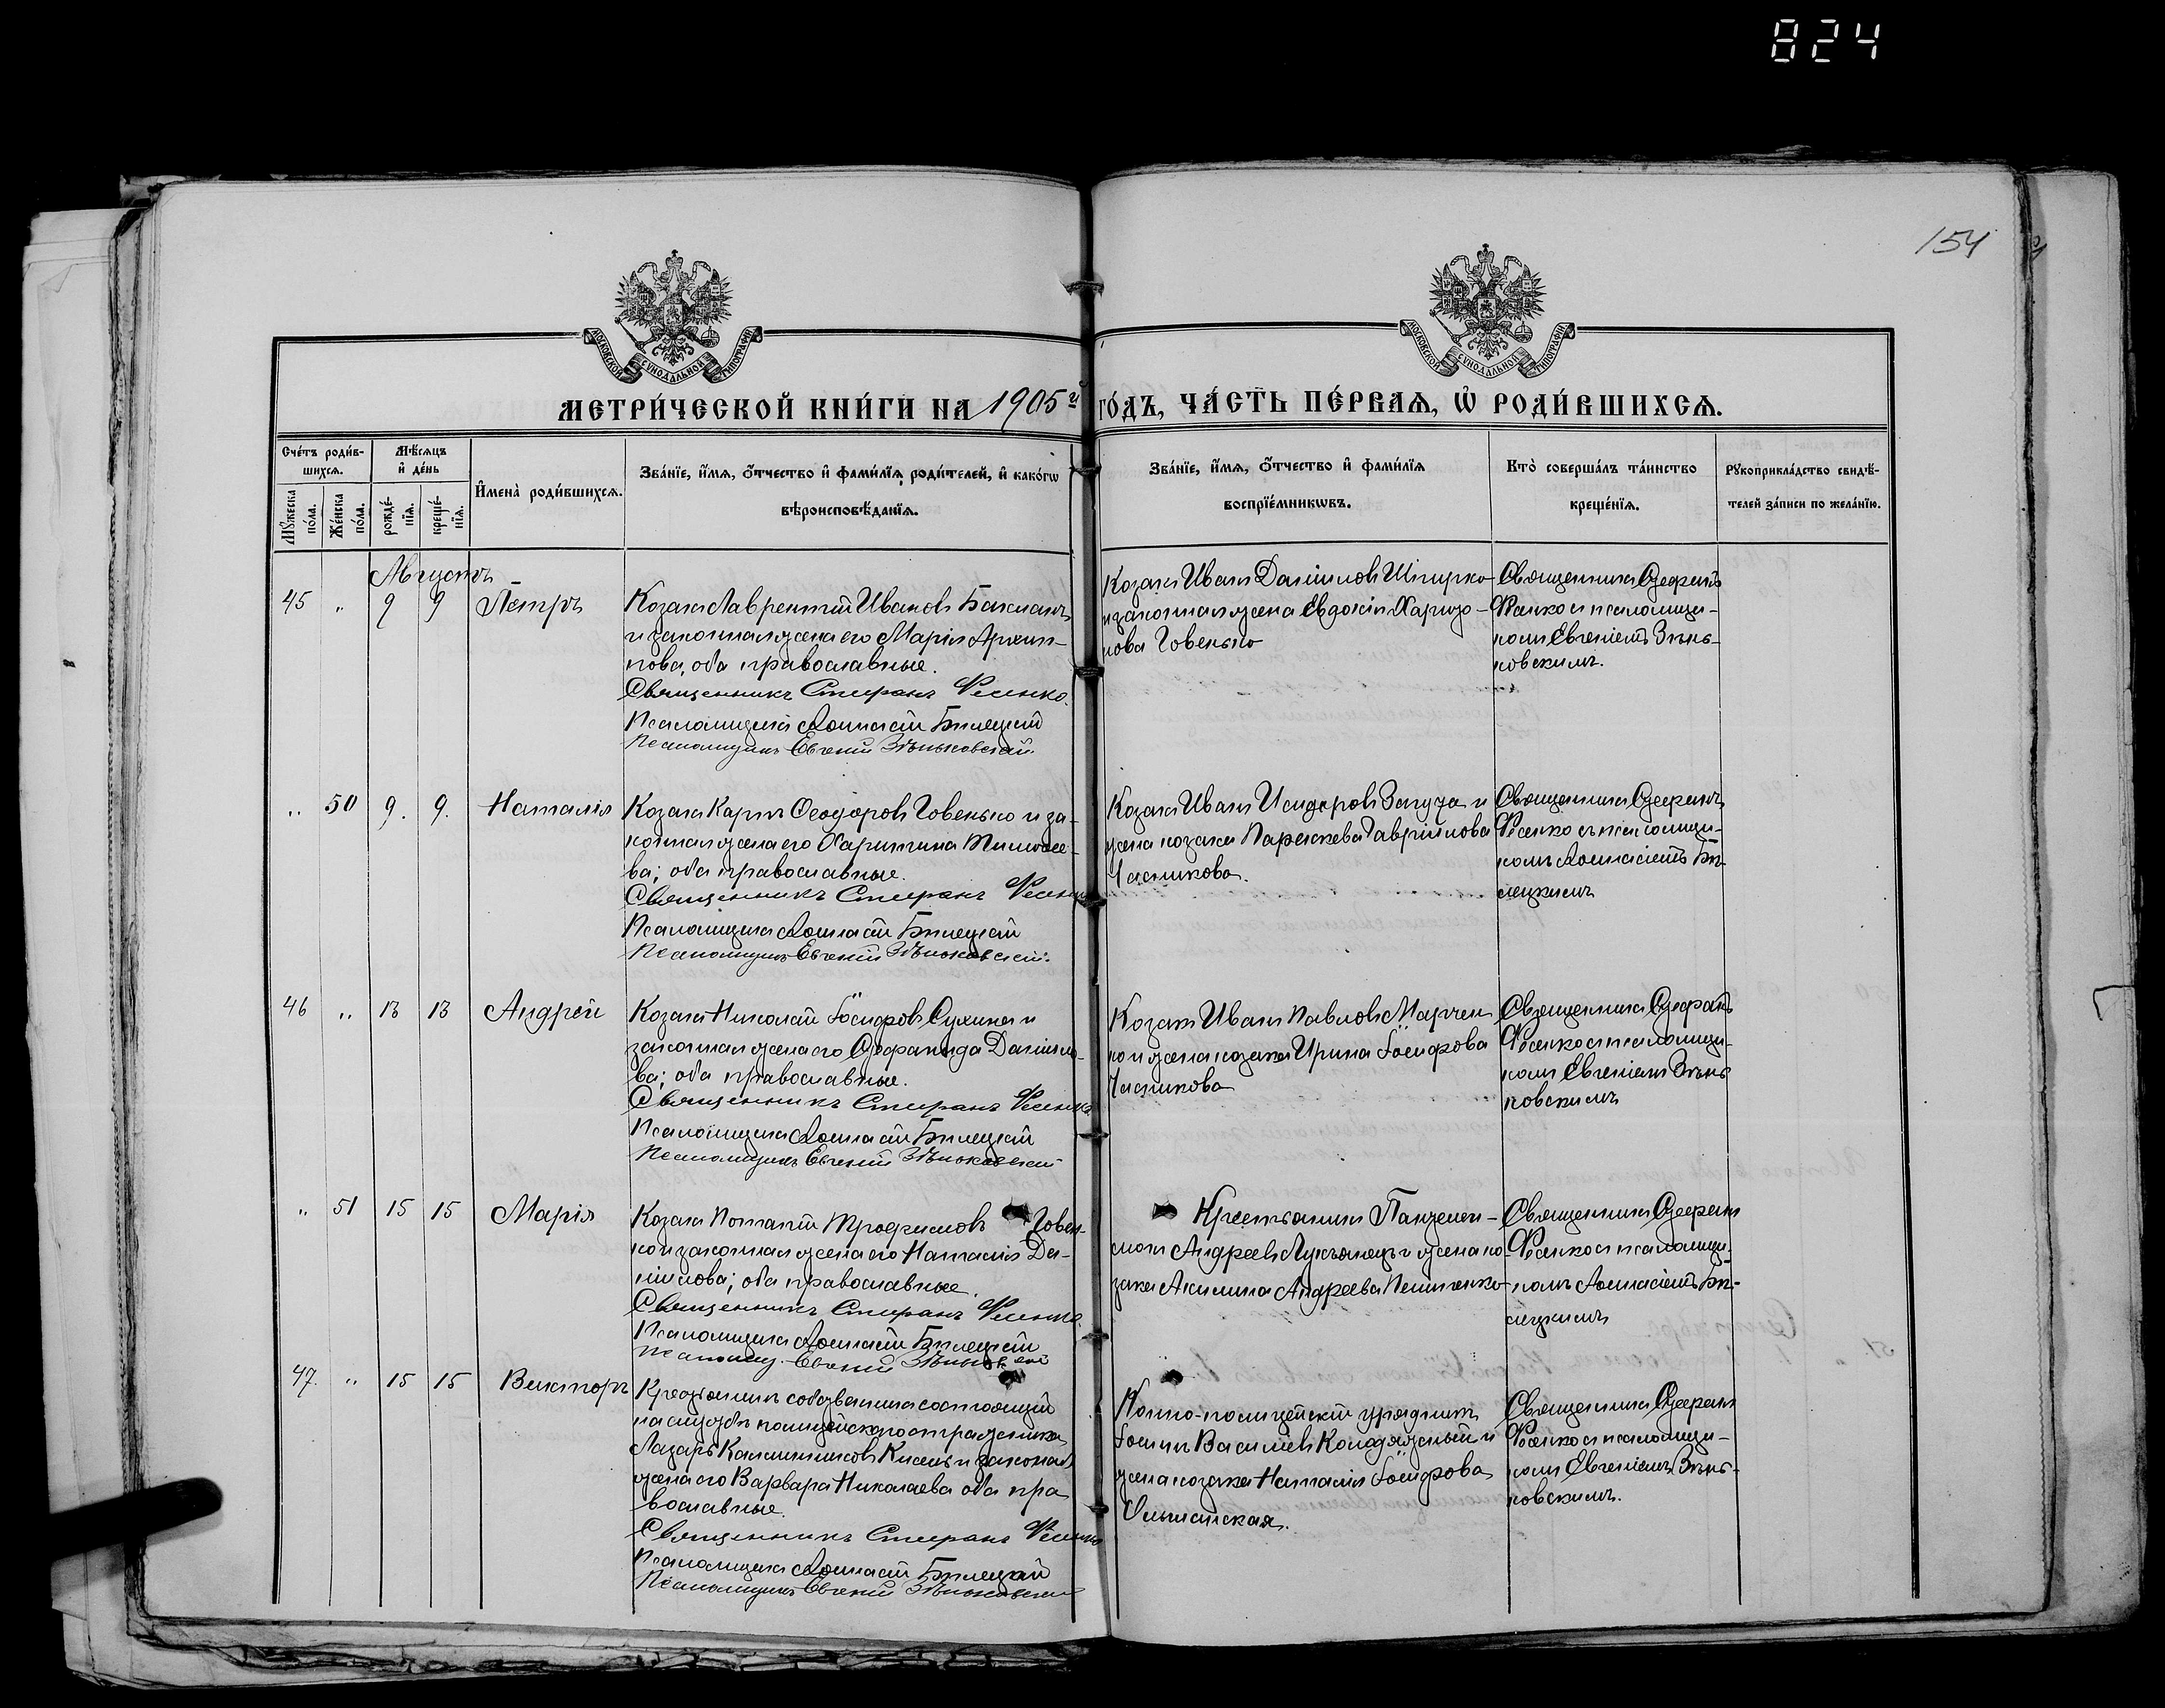 824
154
МОСКОВСКОЙ СУНОДАЛЬНОЙ ТИПОГРАФІИ
МОСКОВСКОЙ СУНОДАЛЬНОЙ ТИПОГРАФІИ
МЕТРИ́ЧЕСКОЙ КНИ́ГИ НА 1905й ГО́ДЪ, ЧА́СТЬ ПЕ́РВАЯ, Ѡ РОДИ́ВШИХСЯ.
Сче́тъ роди́в-
шихся.
Мѣ́сяцъ
и҆ де́нь
Му́жеска по́ла.
Же́нска по́ла.
рожде́-нїя.
креще́-нїя.
И҆мена̀ роди́вшихся.
Зва́нїе, и҆́мя, ѻ҆́тчество и҆ фами́лїя роди́телей, и҆ како́гѡ
вѣроисповѣ́данїя.
Зва́нїе, и҆́мя, ѻ҆́тчество и҆ фами́лїя
воспрїе́мникѡвъ.
Кто̀ соверша́лъ та́инство
креще́нїя.
Рꙋкоприкла́дство свидѣ́-
телей за́писи по жела́нїю.
Августъ
45 " 9 9 Петръ
Козакъ Лаврентій Ивановъ Бакланъ
и законная жена его Марія Архип-
пова, оба православные.
Священникъ Стефанъ Фесенко.
Псаломщикъ Аѳанасій Бѣлецкій
Псаломщикъ Евгеній Зѣньковскій.
Козакъ Иванъ Даніиловъ
и законная жена Евдокія Харито-
нова Говенько
Священникъ Стефанъ
Фесенко съ псаломщи-
комъ Евгеніемъ Зѣнь-
ковскимъ.
" 50 9. 9. Наталія
Козакъ Карпъ Ѳеодоровъ Говенько и за-
конная жена его Харитина Тимоѳее-
ва; оба православные.
Священникъ Стефанъ Фесенко
Псаломщикъ Аѳанасій Бѣлецкій
Псаломщикъ Евгеній Зѣньковскій.
Козакъ Иванъ Исидоровъ и
жена козака Параскева Гавріилова
Часникова.
Священникъ Стефанъ
Фесенко съ псаломщи-
комъ Аѳанасіемъ Бѣ-
лецкимъ
46 " 13 13 Андрей
Козакъ Николай Іосифовъ Сухина и
законная жена его Стефанида Даніило-
ва; оба православные.
Священникъ Стефанъ Фесенко
Псаломщикъ Аѳанасій Бѣлецкій
Псаломщикъ Евгеній Зѣньковскій
Козакъ Иванъ Павловъ Марчен-
ко и жена козака Ирина Іосифова
Часникова
Священникъ Стефанъ
Фесенко съ псаломщи-
комъ Евгеніемъ Зѣнь-
ковскимъ
" 51 15 15 Марія
Козакъ Потапій Трофимовъ Говень-
ко и законная жена его Наталія Да-
ніилова; оба православные.
Священникъ Стефанъ Фесенко
Псаломщикъ Аѳанасій Бѣлецкій
Псаломщ. Евгеній Зѣньковскій
Крестьянинъ Пантелеи-
монъ Андреевъ и жена ко-
зака Акилина Андреева
Священникъ Стефанъ
Фесенко съ псаломщи-
комъ Аѳанасіемъ Бѣ-
лецкимъ
47. " 15 15 Викторъ
Крестьянинъ собственникъ состоящій
на службѣ полицейскаго стражника
Лазарь Калинниковъ и законная
жена его Варвара Николаева оба пра-
вославные.
Священникъ Стефанъ Фесенко
Псаломщикъ Аѳанасій Бѣлецкій
Псаломщикъ Евгеній Зѣньковскій
Конно-полицейскій урядникъ
Іоаннъ Васильевъ и
жена козака Наталія Іосифова
Священникъ Стефанъ
Фесенко съ псаломщи-
комъ Евгеніемъ Зѣнь-
ковскимъ.